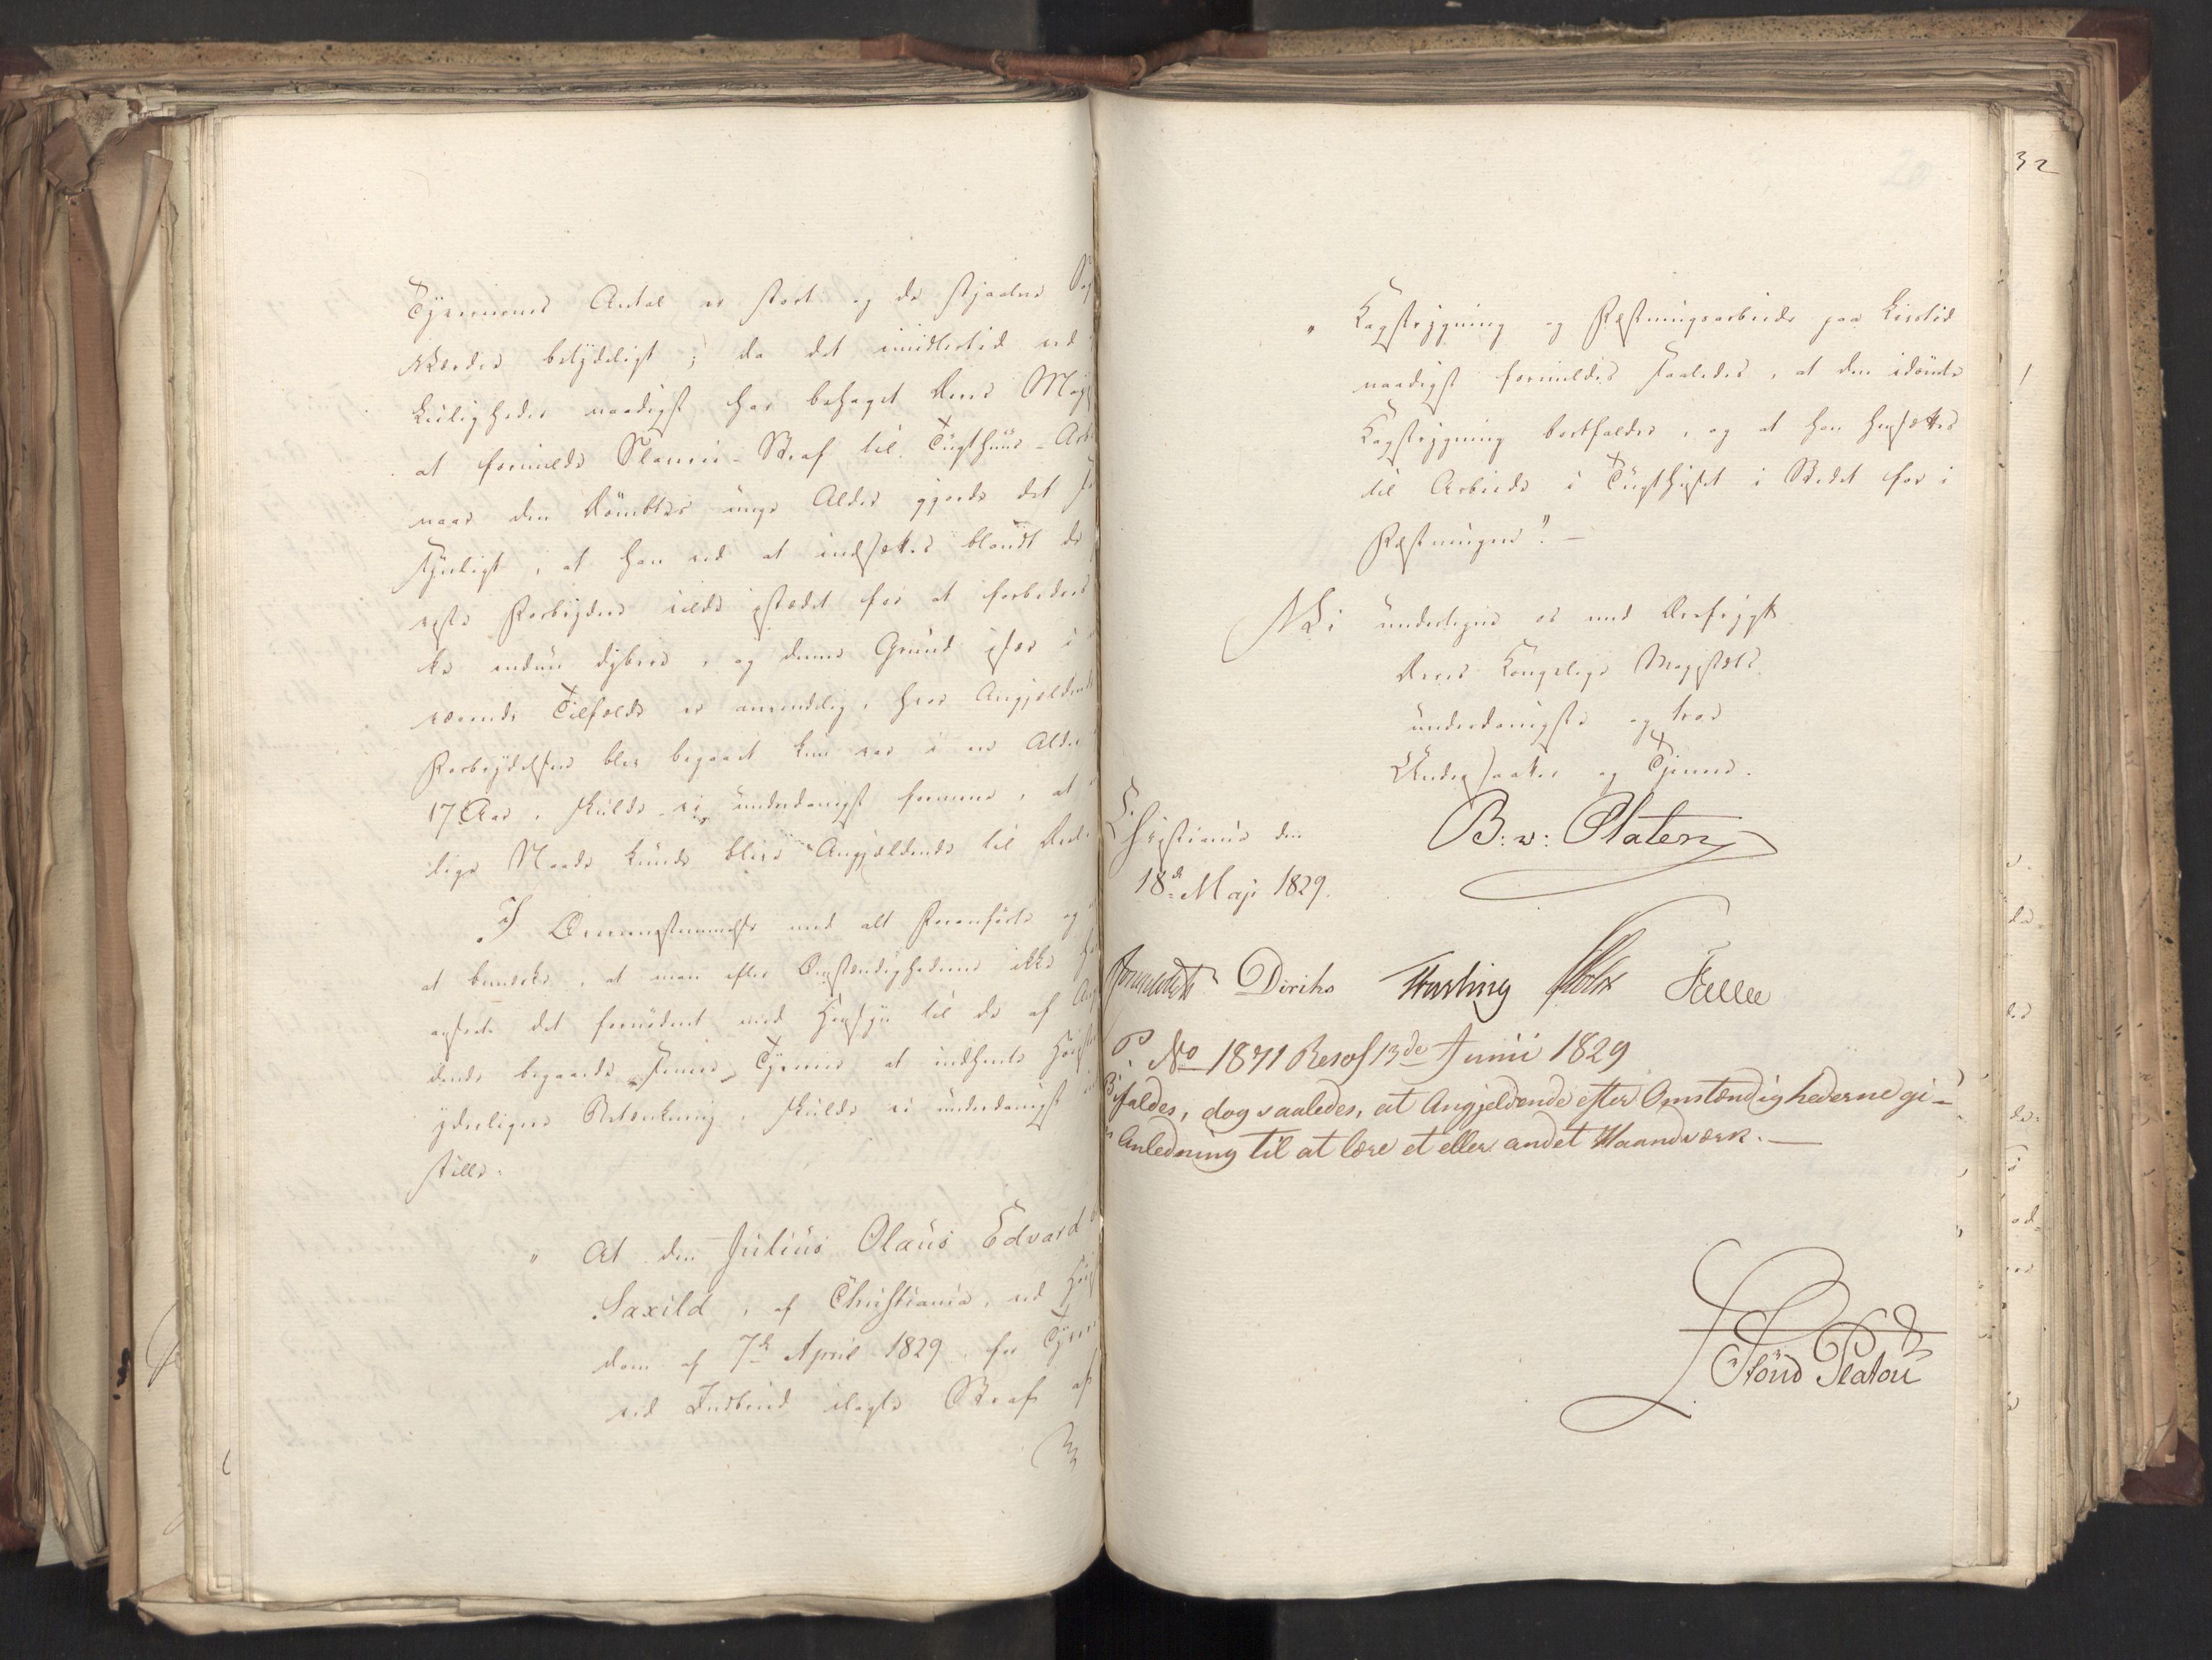 Tyverienes Antal er stort og de stjaalne
Værdier betydeligt; da det imidlertid ved
Leiligheder naadigst har behaget Deres Maj
at formilde Slaverie-Straf til Tugthuus-Arb
naar den Dömtes unge Alder gjorde det
synligt, at han ved at indsættes blandt de
veste Forbrydere vilde istædet for at forbedres
ke endnu dybere, og denne Grund især i
værende Tilfælde er anvendelig, hvor Angjældende
Forbrydelsen blev begaaet kun var i en Alder
17 Aar, skulde vi underdanigst formene, at
lige Maade kunde blive Angjældende til Deel.
I Overeensstemmelse med alt Foranførte og
at bemærke, at man efter Omstændighederne ikke
anseet det fornødent med Hensyn til de af
dende begaaede Tyverier at indhente
yderligere Betænkning, skulde vi underdanigst
stille:
" At den Julius Olaus Edvard
Saxild, af Christiania, ved
dom af 7de April 1829 for
ved Indbrud ilagte Straf af
32
" Kagstrygning og Fæstningsarbeide paa Livstid
naadigst formildes saaledes, at den idömte
Kagstrygning bortfalder, og at han hensættes
til Arbeide i Tugthuset i Stedet for i
Fæstningen". —
Vi underligne os med Ærefrygt
Deres Kongelige Majestæts
underdanigste og troe
Undersaatter og Tjenere.
Christiania den
B: v: Platen
18de Maji 1829.
Diriks Fasting Holst Falbe
P. No 1871 Resol 13de Junii 1829
Bifaldes, dog saaledes, at Angjeldende efter Omstændighederne gi-
Anledning til at lære et eller andet Haandværk. —
Stoud Platou